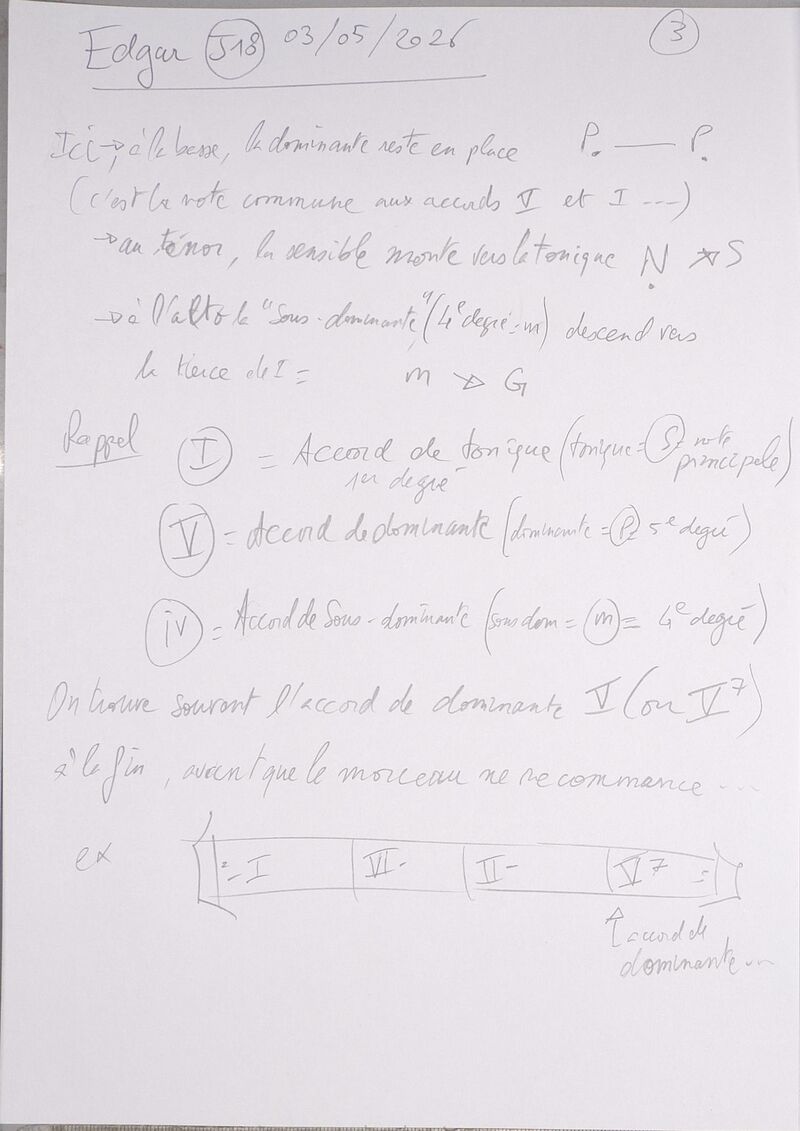 Edgar J18 03/05/2026 3
Ici → à la basse, la dominante reste en place P. — P.
(c'est la note commune aux accords V et I ...)
→ au ténor, la sensible monte vers la tonique N ↗ S
→ à l'alto la "sous-dominante" (4e degré = m) descend vers
la tierce de I = m ↘ G
Rappel I = Accord de tonique (tonique = S = note principale)
1er degré
V = Accord de dominante (dominante = P = 5e degré)
iv = Accord de Sous-dominante (sous dom = m = 4e degré)
On trouve souvent l'accord de dominante V (ou V7)
à la fin, avant que le morceau ne recommance ...
ex : I | VI- | II- | V7 :
↑ accord de
dominante ...